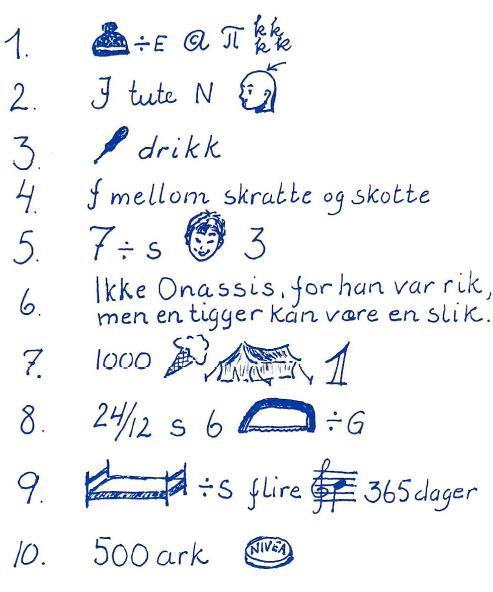 1. ÷E @ π k k k k
2. J tute N
3. drikk
4. f mellom skratte og skotte
5. 7 ÷ s 3
6. Ikke Onassis, for han var rik,
men en tigger kan være en slik.
7. 1000 1
8. 24/12 s 6 ÷G
9. ÷S flire 365 dager
10. 500 ark NIVEA